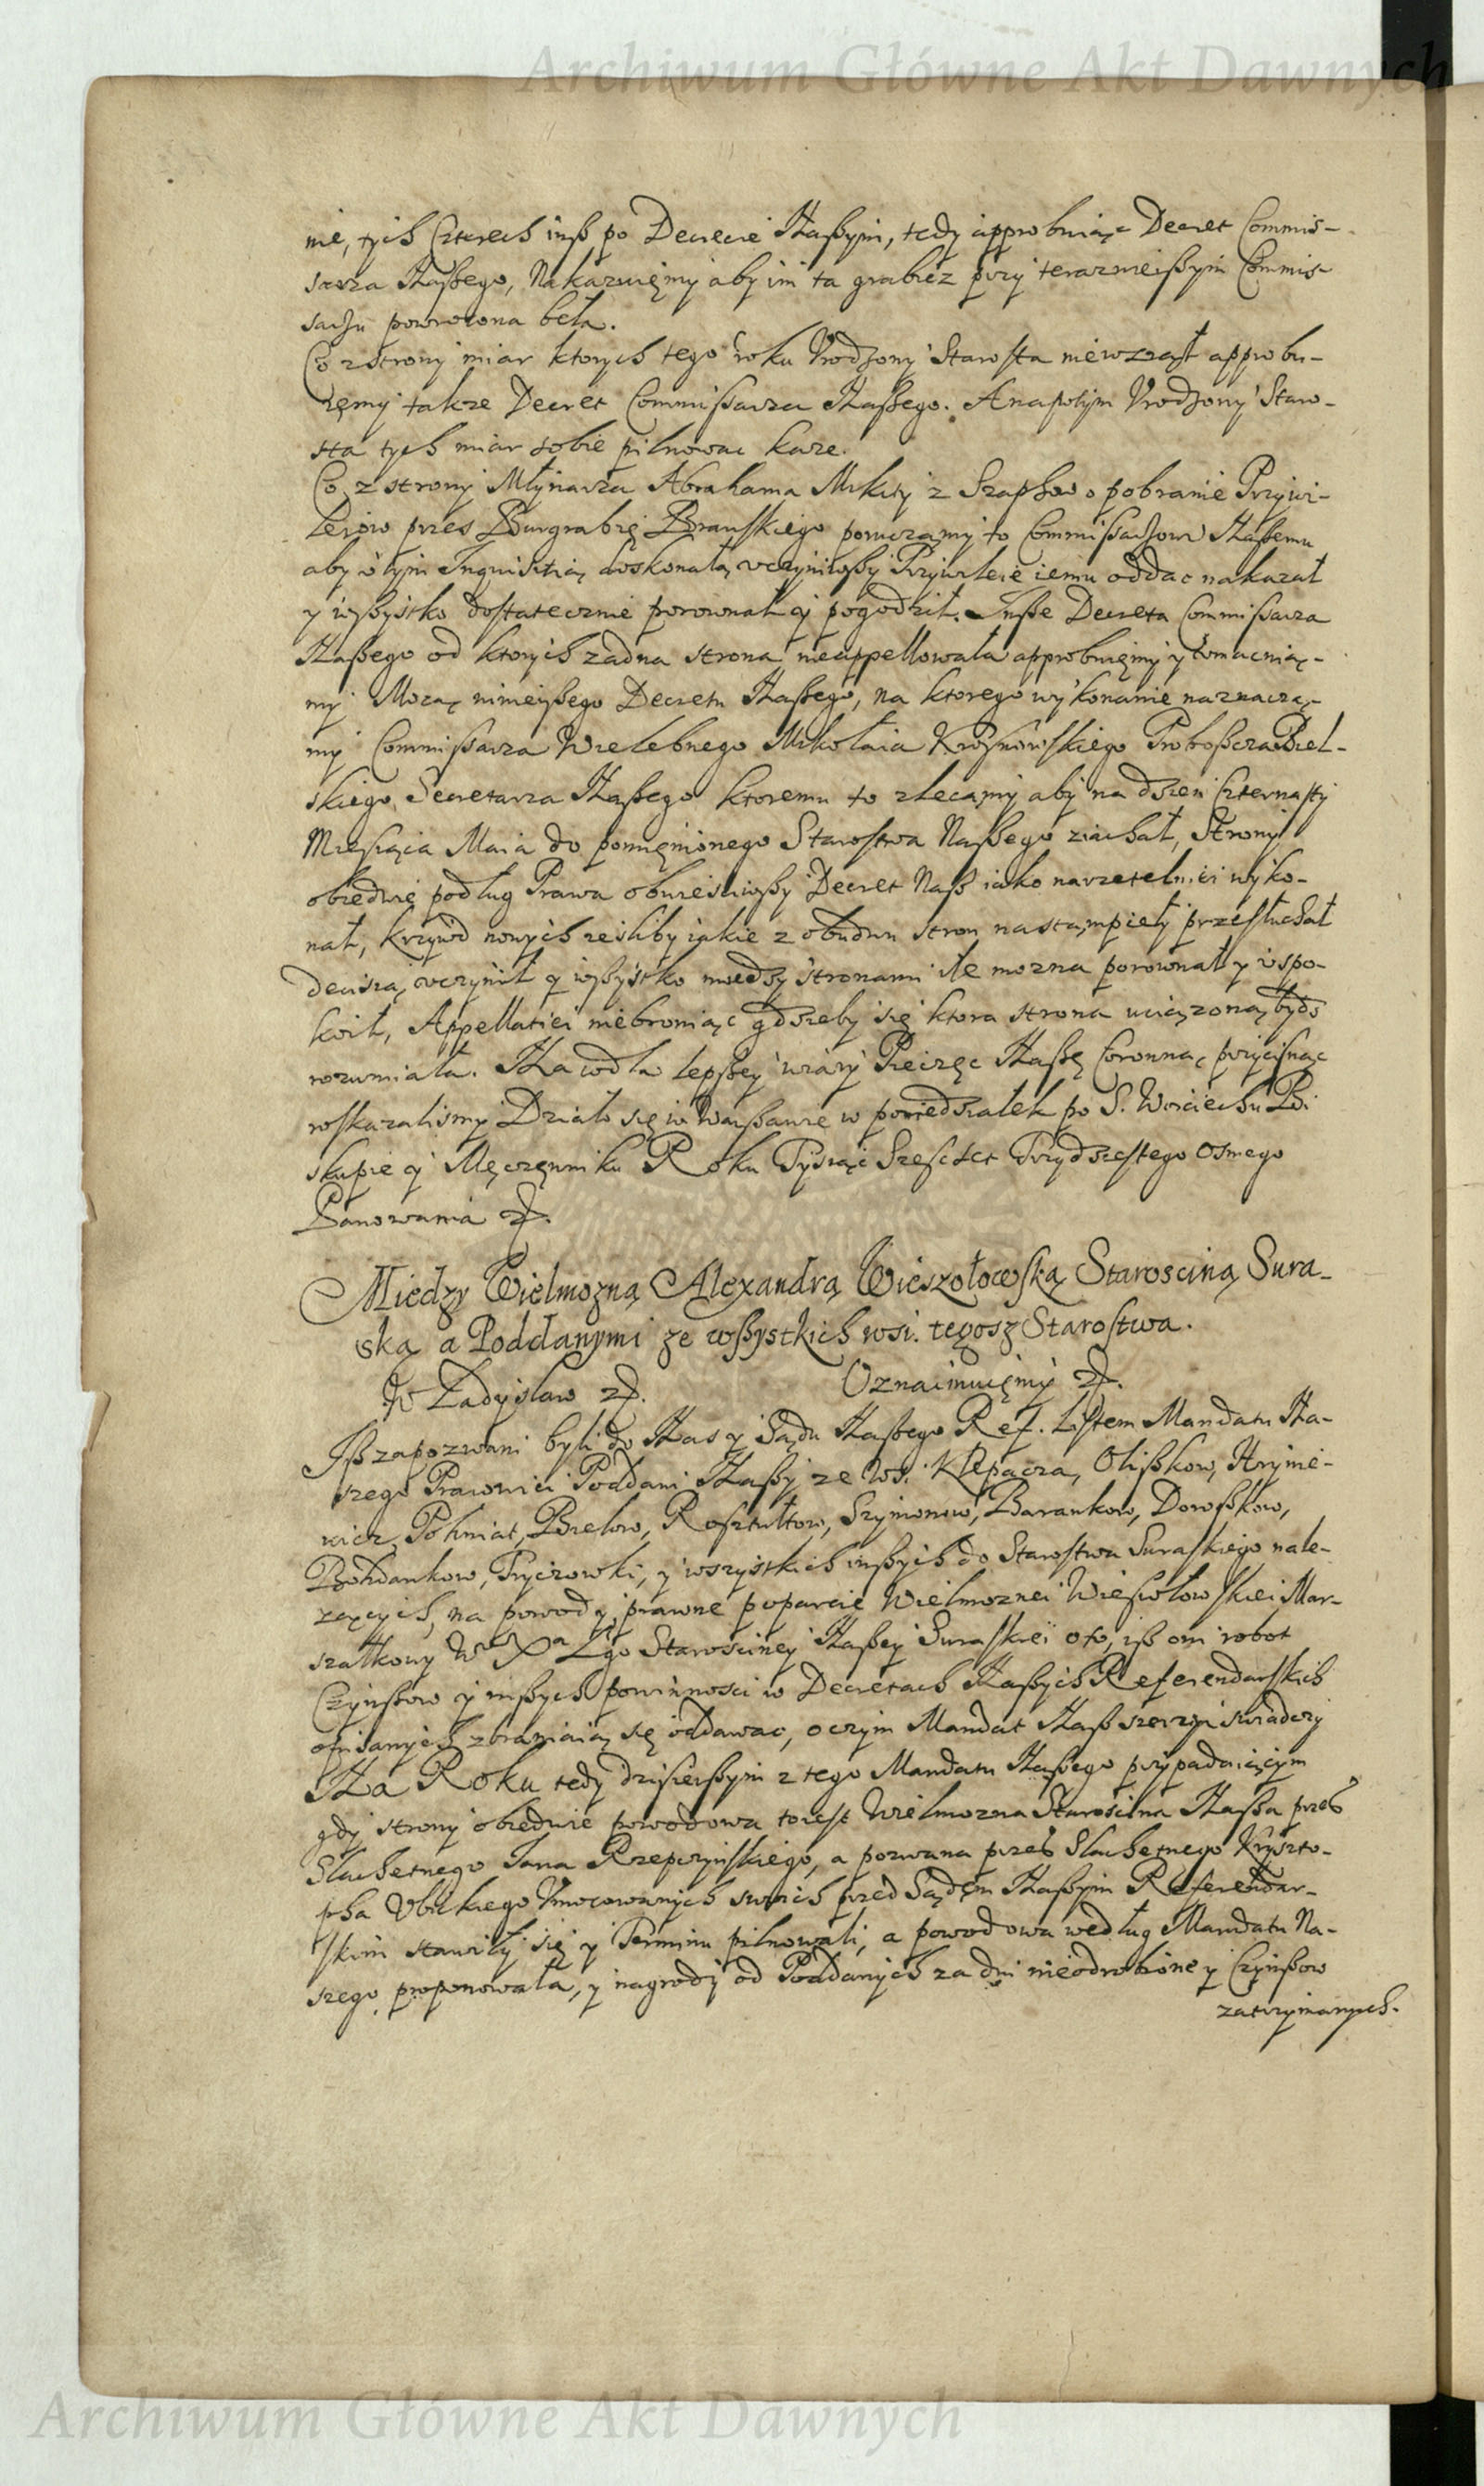 Archiwum Główne Akt Dawnych
nie, tych Czterech insß po Decrecie Naßym, tedy approbuiąc Decret Commis-
sarza Naßego, Nakazuięmy aby im ta grabież przy teraznieißym Commis-
sarzu powrocona beła.
Co z strony miar ktorych tego roku Vrodzony Starosta niewzzął approbu-
ięmy takze Decret Commißarza Naßego. A napotym Vrodzony Staro-
sta tych miar sobie pilnowac kaze.
Co z strony Młynarza Abrahama Mikity z Szapkow o pobranie Przywi-
leiow przes Burgrabię Branskiego poruczamy to Commißarzowi Naßemu
aby o tym Inquisitią doskonałą vczyniwßy Przywileie iemu oddac nakazał
y wßystko dostatecznie porownał y pogodził. Inße Decreta Commißarza
Naßego od ktorych zadna strona nieappellowała approbuięmy y vmacnia-
my Mocą ninieyßego Decretu Naßego, na ktorego wykonanie naznacza-
my Commißarza Wielebnego Mikołaia Krosnowskiego Proboßcza Biel-
skiego Secretarza Naßego ktoremu to zlecamy aby na dzien Czternasty
Miesiąca Maia do pomięnionego Starostwa Naßego ziachał, Strony
obiedwie podług Prawa obwiesciwßy Decret Naß iako narzetelniei wyko-
nał, krzywd nowych iesliby iakie z obudwu stron nastąmpieły przesłuchał
decisią vczynił y wßystko miedzy stronami ile mozna porownał y vspo-
koił, Appellatiei niebroniąc gdzieby się ktora strona uciązoną bydz
rozumiała. Na co dla lepßey wiary Pieczęc Naßę Coronną przycisnąc
roskazalismy Działo się w Warßawie w poniedziałek po S. Woiciechu Bi
skupie y Męczęnniku Roku Tysiąc Szescset Trzydziestego Osmego
Panowania etc.
Miedzy Wielmozną Alexandrą Wieszołowską Starosciną Sura-
ską a Poddanymi ze wßystkich wsi tegosz Starostwa.
Władysław etc. Oznaimuięmy etc.
Iß zapozwani byli do Nas y Sądu Naßego Ref. Listem Mandatu Na-
szego Pracowici Poddani Naßy ze Wsi Klepacza, Olißkow, Hrynie-
wicz, Pohniat, Bielow, Rosztułtow, Szymonow, Barankow, Doroßkow,
Bohdankow, Tryczowki, y wszystkich inßych do Starostwa Suraskiego nale-
zących, na powod y prawne poparcie Wielmoznei Wiesiołowskiei Mar-
szałkowy W Xa Lgo Starosciney Naßey Suraskiei oto, iß oni robot
Czynßow y inßych powinnosci w Decretach Naßych Referendarskich
opisanych zbraniaią się oddawac, o czym Mandat Naß szerzyi swiadczy
Na Roku tedy dzisieißym z tego Mandatu Naßego przypadaiącym
gdy strony obiedwie powodowa toiest Wielmozna Starościna Naßa przes
Slachetnego Jana Rzepczynskiego, a pozwana przes Slachetnego Krysto-
pha Vbickiego Vmocowanych swoich przed Sądęm Naßym Referendar-
skim stawiły się y Terminu pilnowali, a powodowa według Mandatu Na-
szego proponowała, y nagrody od Poddanych za dni nieodrobione y Czynßow
zatrzymanych.
Archiwum Główne Akt Dawnych